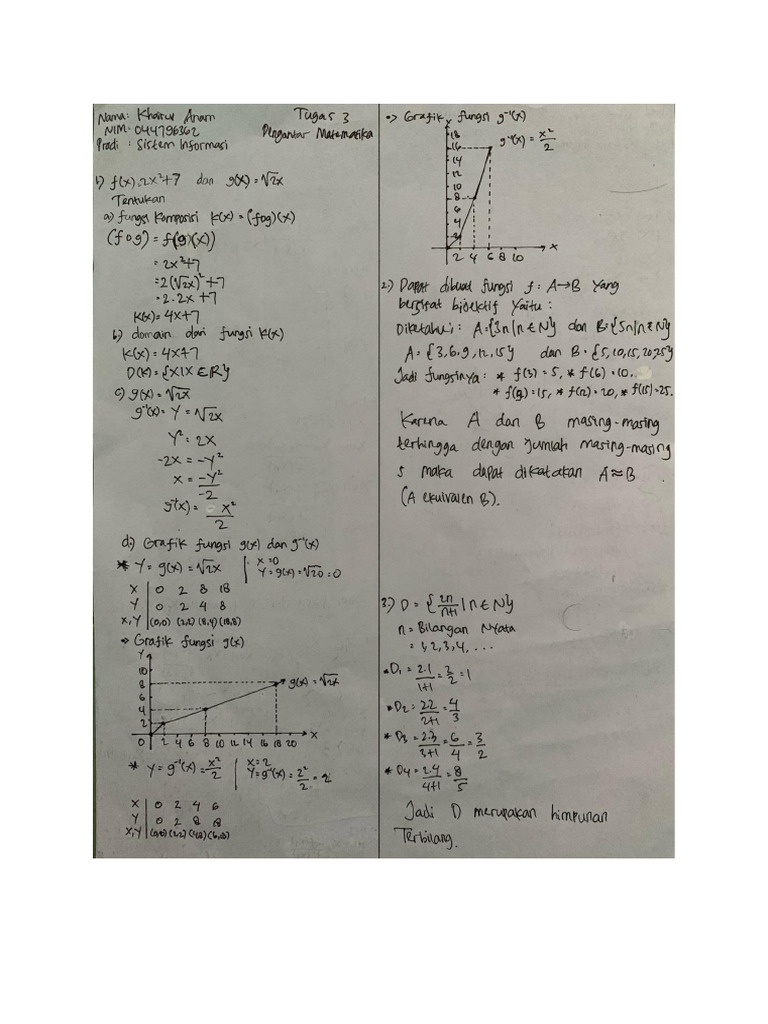 Nama: Khairul Anam
NIM: 044796362
Prodi : Sistem Informasi
Tugas 3
Pengantar Matematika
1) f(x)=2x²+7 dan g(x)=√2x
Tentukan
a) fungsi komposisi k(x) = (fog)(x)
(fog) = f(g(x))
= 2x²+7
= 2(√2x)²+7
= 2.2x +7
k(x)= 4x+7
b) domain dari fungsi k(x)
k(x) = 4x+7
D(k) = {x|x ∈ R}
c) g(x) = √2x
g⁻¹(x)= y = √2x
y² = 2x
-2x = -y²
x = -y²/-2
g⁻¹(x) = x²/2
d.) Grafik fungsi g(x) dan g⁻¹(x)
* y = g(x) = √2x | x = 0
y = g(x) = √20 = 0
x | 0 2 8 18
y | 0 2 4 8
x,y | (0,0) (2,2) (8,4) (18,8)
→ Grafik fungsi g(x)
y
10
8
6
4
2
0 2 4 6 8 10 12 14 16 18 20 x
g(x) = √2x
* y = g⁻¹(x) = x²/2 | x = 2
y = g⁻¹(x) = 2²/2 = 2
x | 0 2 4 6
y | 0 2 8 18
x,y | (0,0) (2,2) (4,8) (6,18)
•> Grafik fungsi g⁻¹(x)
x
18
16
14
12
10
8
6
4
2
2 4 6 8 10 x
g⁻¹(x) = x²/2
2.) Dapat dibuat fungsi f: A→B yang
bersifat bijektif yaitu:
Diketahui: A={3n|n∈N} dan B={5n|n∈N}
A = {3,6,9,12,15} dan B = {5,10,15,20,25}
Jadi fungsinya: * f(3) = 5, * f(6) = 10,
* f(9)=15, * f(12) = 20, * f(15)=25.
Karena A dan B masing-masing
terhingga dengan jumlah masing-masing
5 maka dapat dikatakan A≈B
(A ekuivalen B).
3.) D = {2n/n+1 | n ∈ N}
n = Bilangan Nyata
= 1, 2, 3, 4, ...
• D₁ = 2.1/1+1 = 2/2 = 1
* D₂ = 2.2/2+1 = 4/3
* D₃ = 2.3/3+1 = 6/4 = 3/2
* D₄ = 2.4/4+1 = 8/5
Jadi D merupakan himpunan
Terbilang.